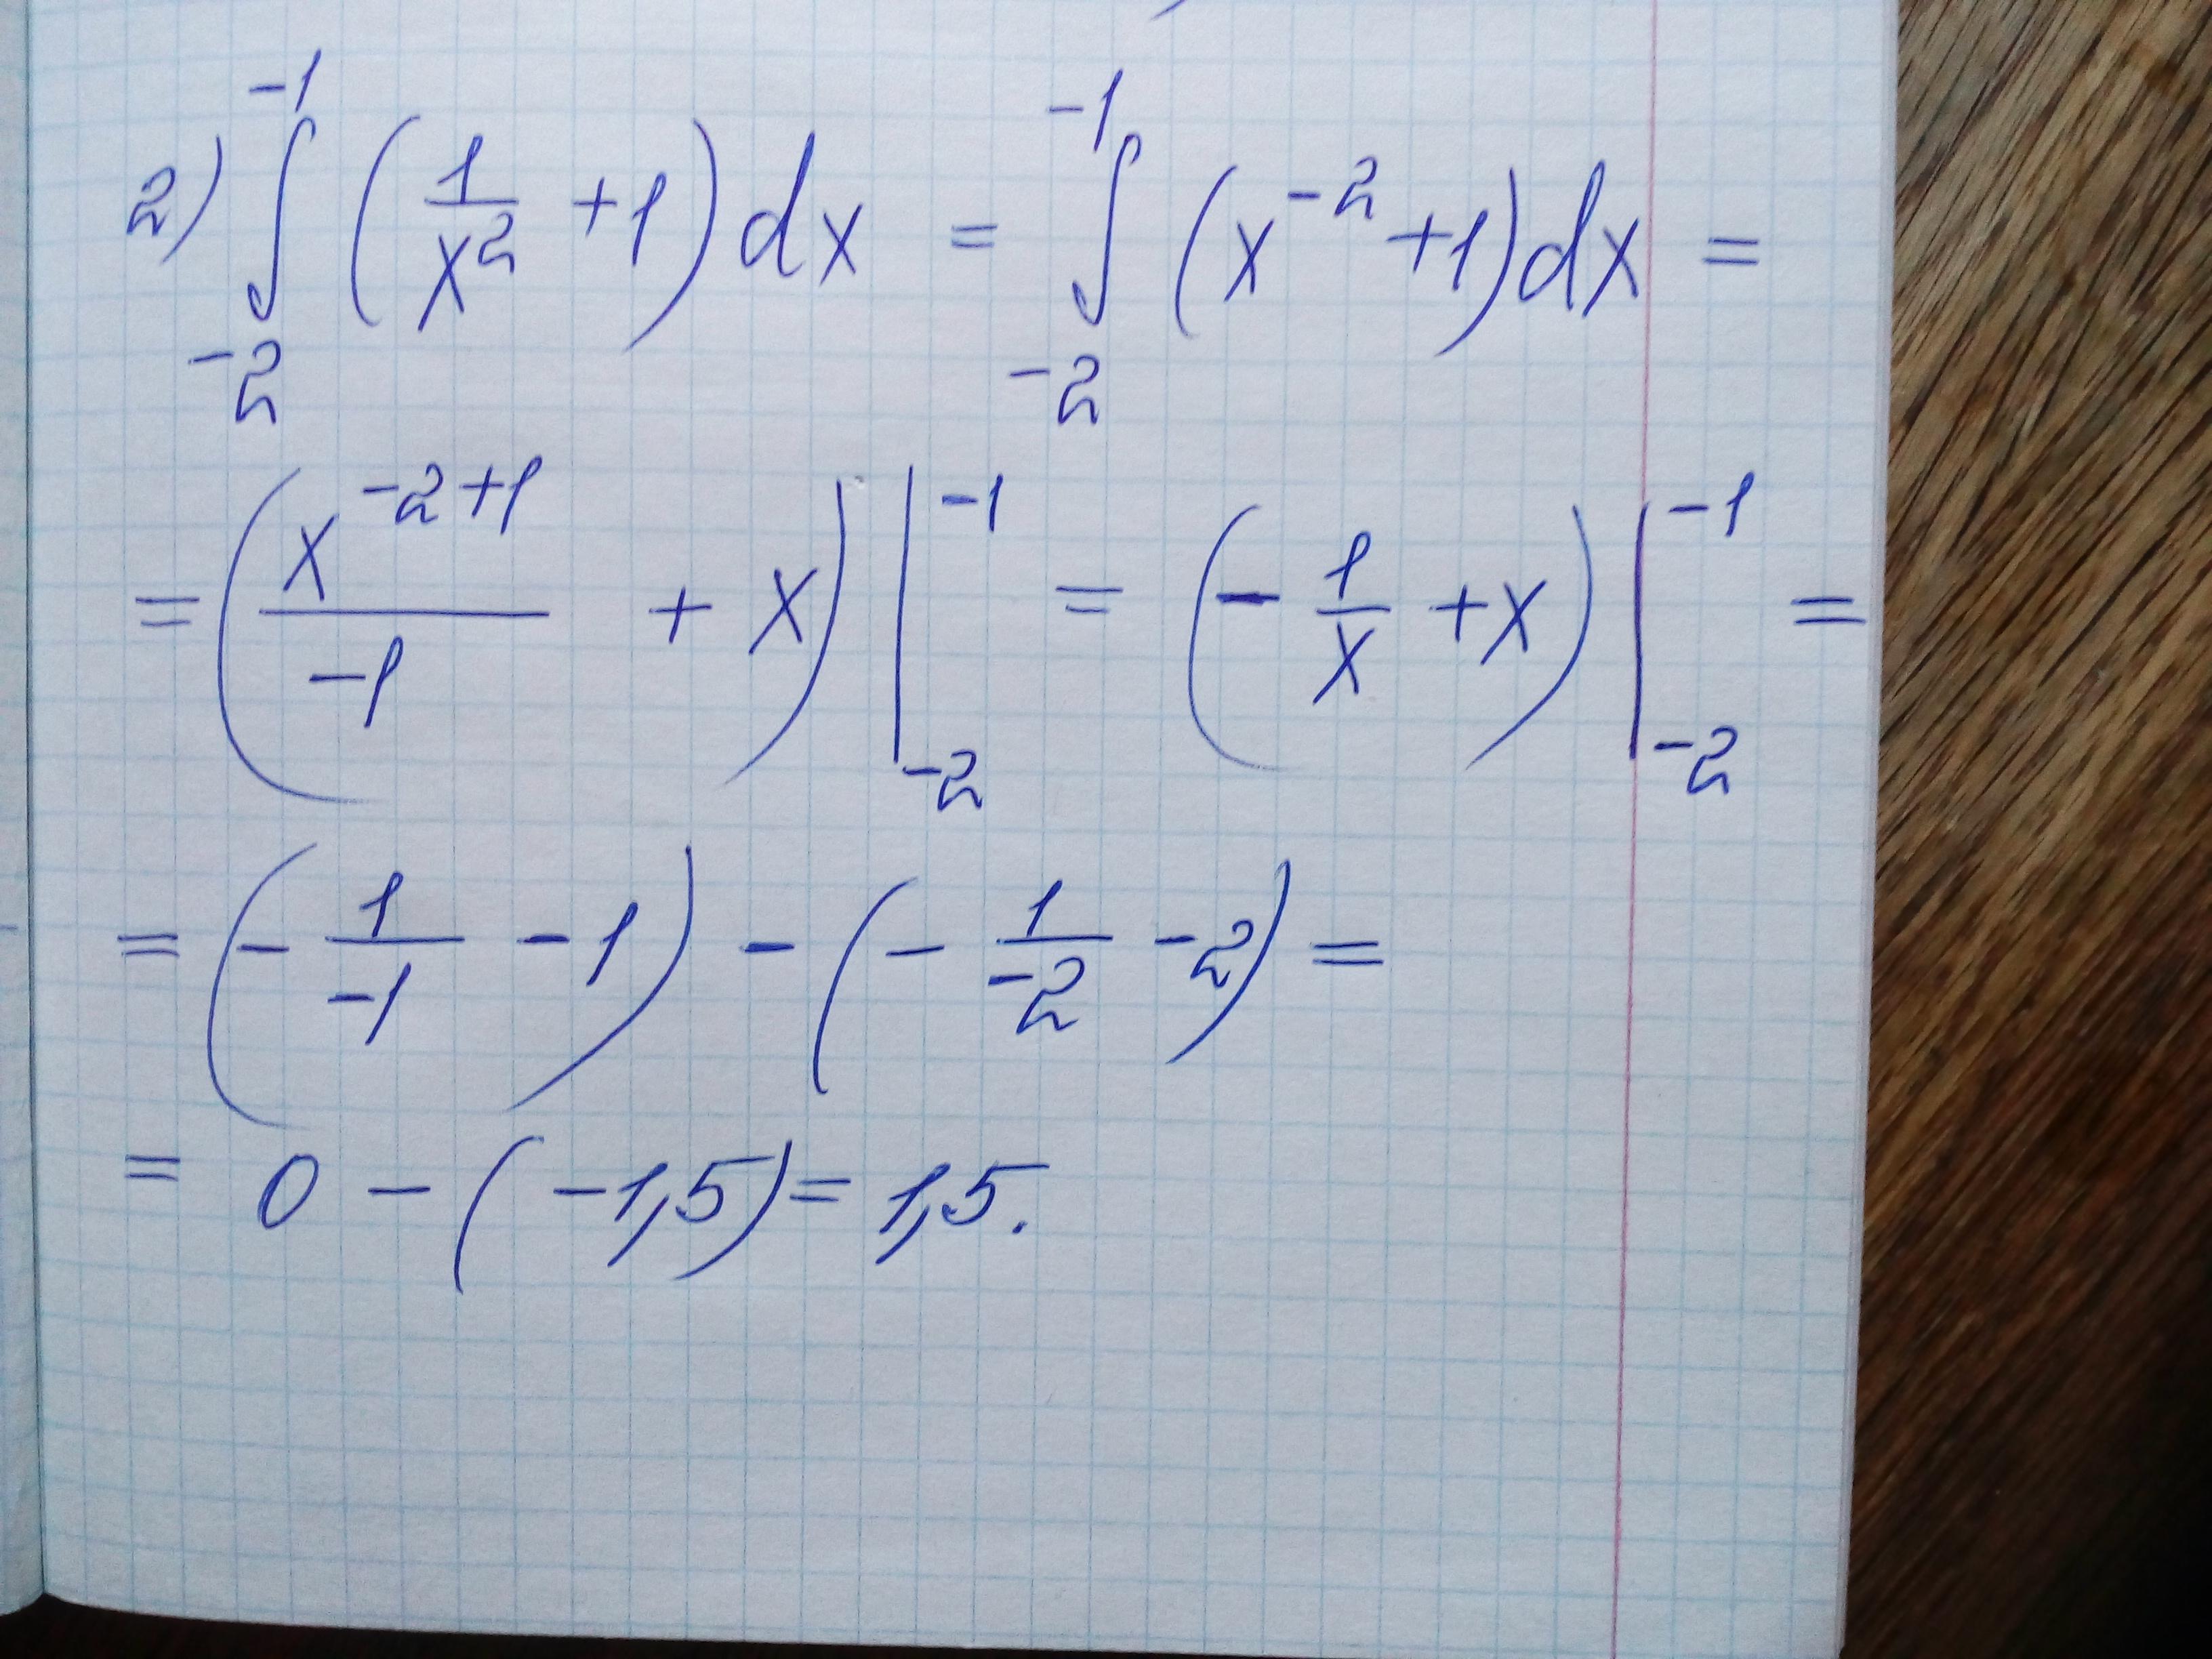 2) ∫_{-2}^{-1} (1/x² + 1) dx = ∫_{-2}^{-1} (x^{-2} + 1) dx =
= (x^{-2+1}/-1 + x) |_{-2}^{-1} = (- 1/x + x) |_{-2}^{-1} =
= (- 1/-1 - 1) - (- 1/-2 - 2) =
= 0 - (-1,5) = 1,5.